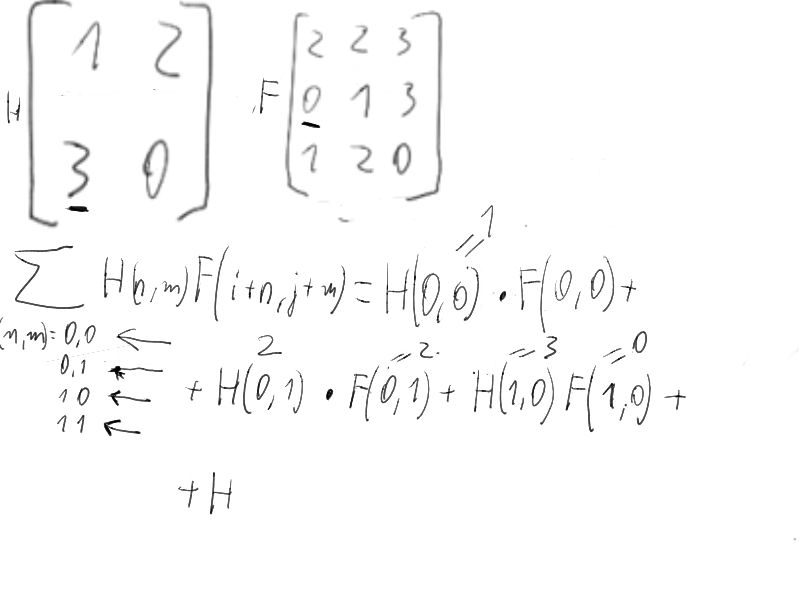 H [1 2
3 0]
F [2 2 3
0 1 3
1 2 0]
=1
∑ H(n,m)F(i+n,j+m)=H(0,0)·F(0,0)+
(n,m)=0,0 ←
2 =2 =3 =0
0,1 ←
+H(0,1)·F(0,1)+H(1,0)F(1,0)+
10 ←
11 ←
+H